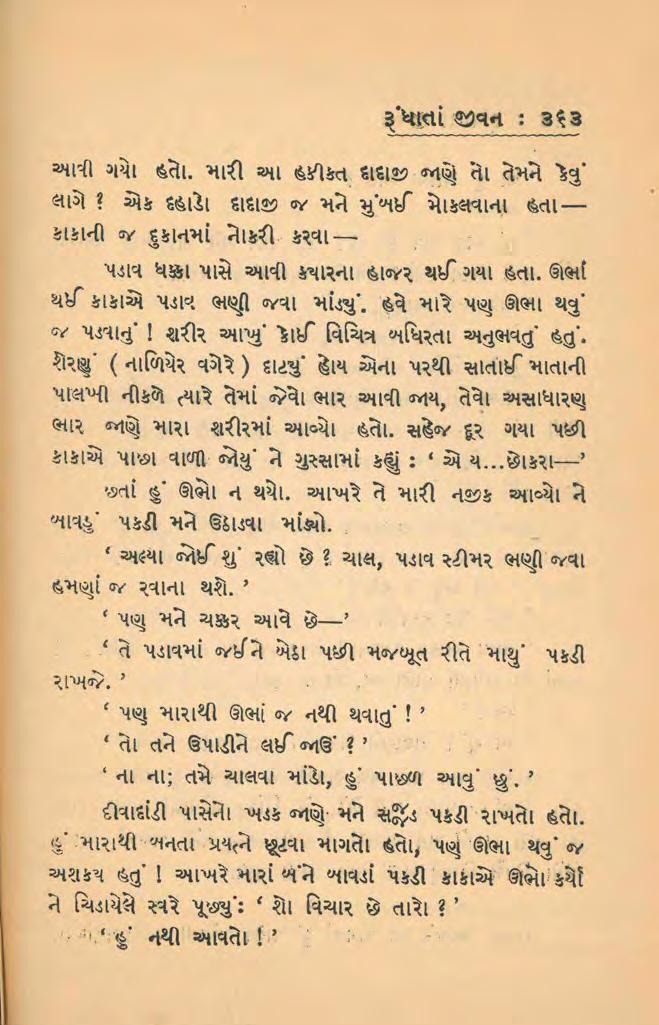 રૂંધાતાં જીવન : ૩૬૩
આવી ગયો હતો. મારી આ હકીકત દાદાજી જાણે તો તેમને કેવું
લાગે ? એક દહાડો દાદાજી જ મને મુંબઈ મોકલવાના હતા—
કાકાની જ દુકાનમાં નોકરી કરવા—
પડાવ ધક્કા પાસે આવી ક્યારના હાજર થઈ ગયા હતા. ઊભાં
થઈ કાકાએ પડાવ ભણી જવા માંડ્યું. હવે મારે પણ ઊભા થવું
જ પડવાનું ! શરીર આખું કોઈ વિચિત્ર બધિરતા અનુભવતું હતું.
શેરણું ( નાળિયેર વગેરે ) દાટ્યું હોય એના પરથી સાતાઈ માતાની
પાલખી નીકળે ત્યારે તેમાં જેવો ભાર આવી જાય, તેવો અસાધારણ
ભાર જાણે મારા શરીરમાં આવ્યો હતો. સહેજ દૂર ગયા પછી
કાકાએ પાછા વાળી જોયું ને ગુસ્સામાં કહ્યું : ‘ એ ય...છોકરા—’
છતાં હું ઊભો ન થયો. આખરે તે મારી નજીક આવ્યો ને
બાવડું પકડી મને ઉઠાડવા માંડ્યો.
‘ અલ્યા જોઈ શું રહ્યો છે ? ચાલ, પડાવ સ્ટીમર ભણી જવા
હમણાં જ રવાના થશે. ’
‘ પણ મને ચક્કર આવે છે—’
‘ તે પડાવમાં જઈને બેઠા પછી મજબૂત રીતે માથું પકડી
રાખજે. ’
‘ પણ મારાથી ઊભાં જ નથી થવાતું ! ’
‘ તો તને ઉપાડીને લઈ જાઉં ? ’
‘ ના ના; તમે ચાલવા માંડો, હું પાછળ આવું છું. ’
દીવાદાંડી પાસેનો ખડક જાણે મને સજ્જડ પકડી રાખતો હતો.
હું મારાથી બનતા પ્રયત્ને છૂટવા માગતો હતો, પણ ઊભા થવું જ
અશક્ય હતું ! આખરે મારાં બંને બાવડાં પકડી કાકાએ ઊભો કર્યો
ને ચિડાયેલે સ્વરે પૂછ્યું: ‘ શો વિચાર છે તારો ? ’
‘ હું નથી આવતો ! ’